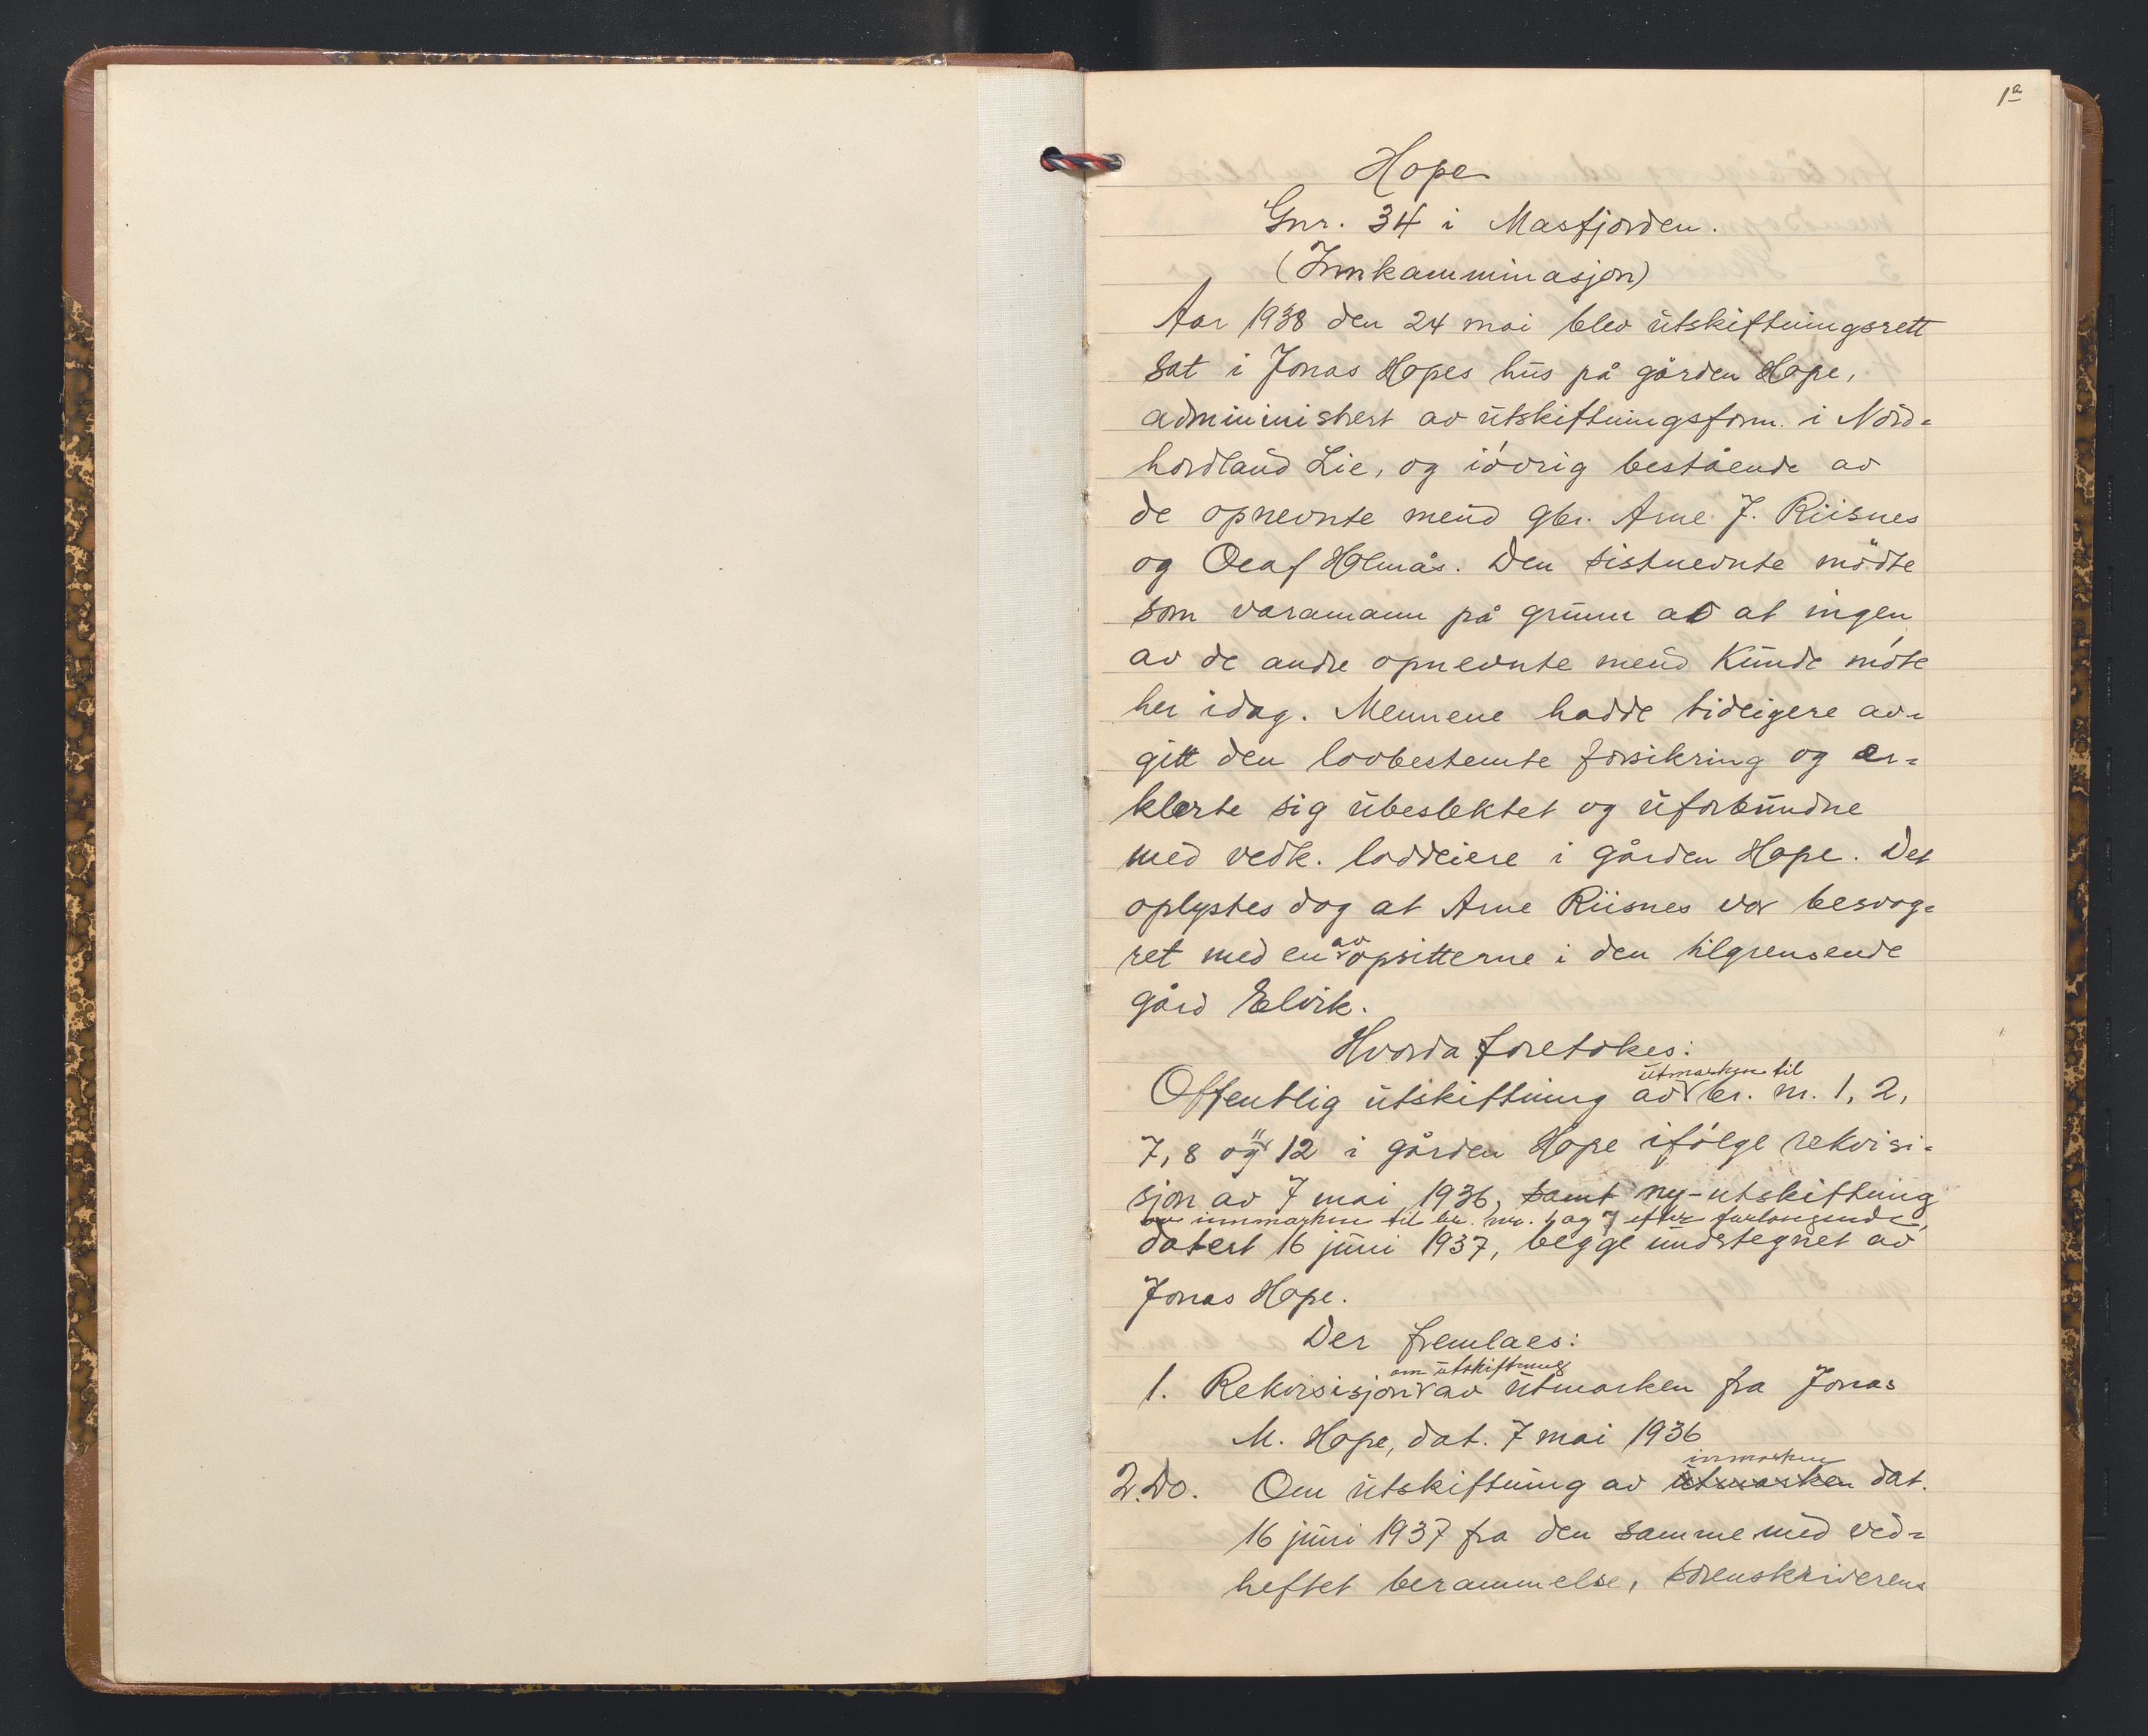 1a
Hope
Gnr. 34 i Masfjorden.
(Innkamminasjon)
Aar 1938 den 24 mai blev utskiftningsrett
sat i Jonas Hopes hus på gården Hope,
administrert av utskiftningsform. i Nord-
hordland Lie, og iøvrig bestående av
de opnevnte mend gbr. Arne J. Riisnes
og Olaf Holmås. Den sistnevnte mödte
som varamann på grunn av at ingen
av de andre opnevnte mend kunde møte
her idag. Mennene hadde tidligere av-
gitt den lovbestemte forsikring og er-
klærte sig ubeslektet og uforbundne
med vedk. loddeiere i gården Hope. Det
oplystes dog at Arne Riisnes var besvog-
ret med en av opsitterne i den tilgrensende
gård Elvik.
Hvorda foretokes:
Offentlig utskiftning av utmarken til br. nr. 1, 2,
7, 8 og 11 12 i gården Hope ifølge rekvisi-
sjon av 7 mai 1936, samt ny-utskiftning
av innmarken til br. nr. 1 og 7 efter forlangende,
datert 16 juni 1937, begge undertegnet av
Jonas Hope.
Der fremlaes:
1. Rekvisisjon om utskiftning av utmarken fra Jonas
M. Hope, dat. 7 mai 1936
2. Do. Om utskiftning av utmarken innmarken dat.
16 juni 1937 fra den samme med ved-
heftet berammelse, sorenskriverens